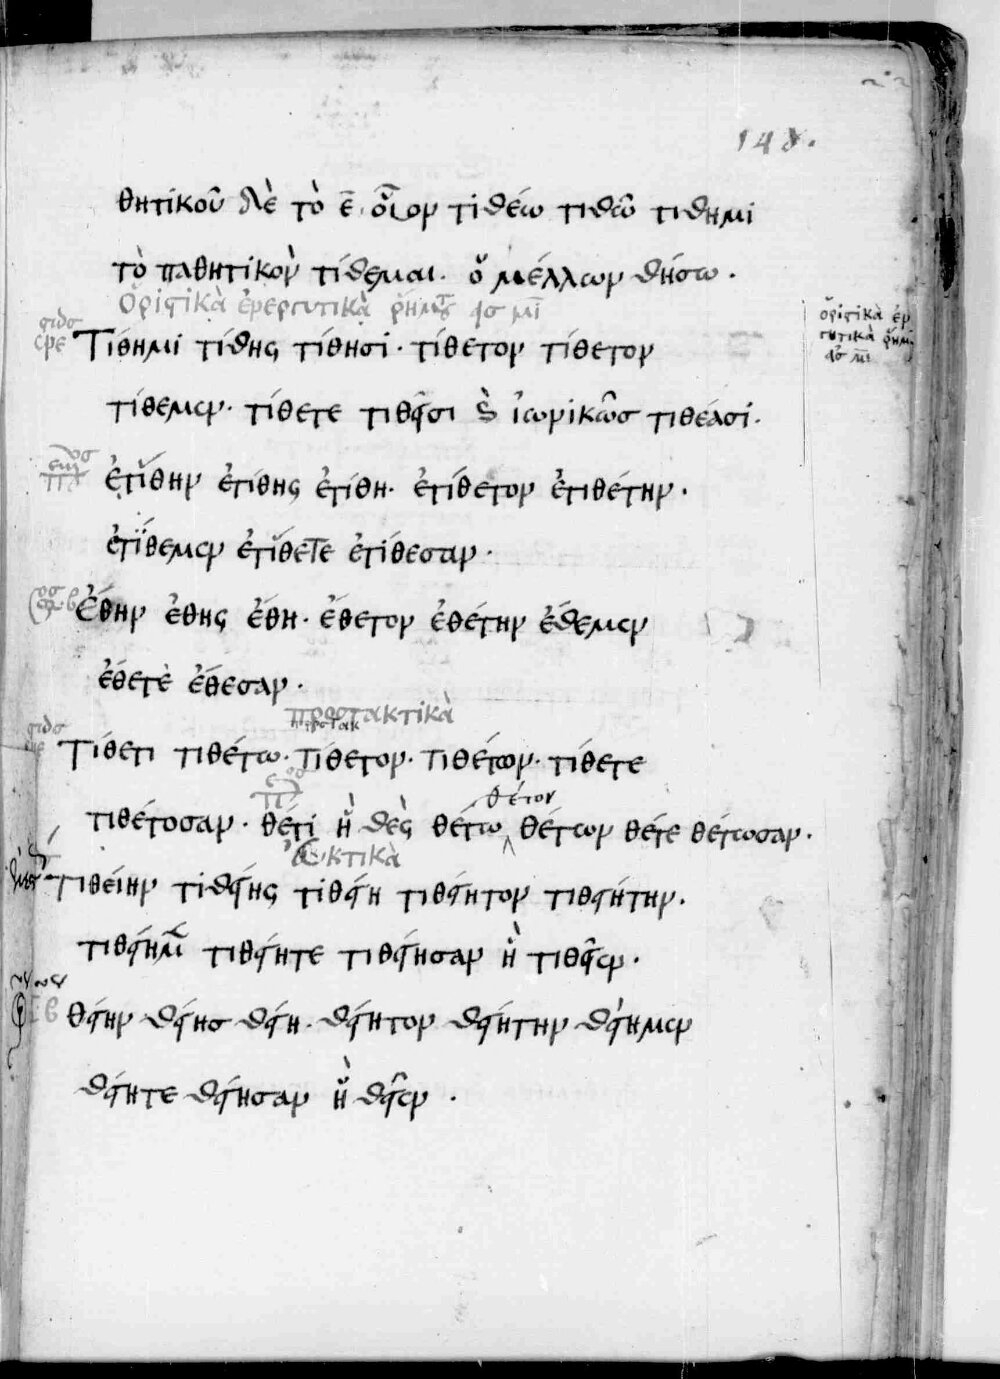 148.
θητικοῦ δὲ τὸ ε̄ οἷον τιθέω τιθῶ τίθημι
τὸ παθητικὸν τίθεμαι. ὁ μέλλων θήσω.
ὁριστικὰ ἐνεργητικὰ
Τίθημι τίθης τίθησι. τίθετον τίθετον
τίθεμεν. τίθετε τιθεῖσι ἰωνικῶς τιθέασι.
ἐτίθην ἐτίθης ἐτίθη. ἐτίθετον ἐτιθέτην.
ἐτίθεμεν ἐτίθετε ἐτίθεσαν.
ἔθην ἔθης ἔθη. ἔθετον ἐθέτην ἔθεμεν
ἔθετὲ ἔθεσαν.
προστακτικὰ
Τίθετι τιθέτω. τίθετον. τιθέτων. τίθετε
θέτον
τιθέτοσαν. θέτι ἢ θὲς θέτω θέτων θέτε θέτωσαν.
εὐκτικὰ
τιθείην τιθείης τιθείη τιθείητον τιθειήτην.
τιθείημεν τιθείητε τιθείησαν ἢ τιθεῖεν.
θείην θείης θείη. θείητον θειήτην θείημεν
θείητε θείησαν ἢ θεῖεν.
ὁριστικὰ ἐν